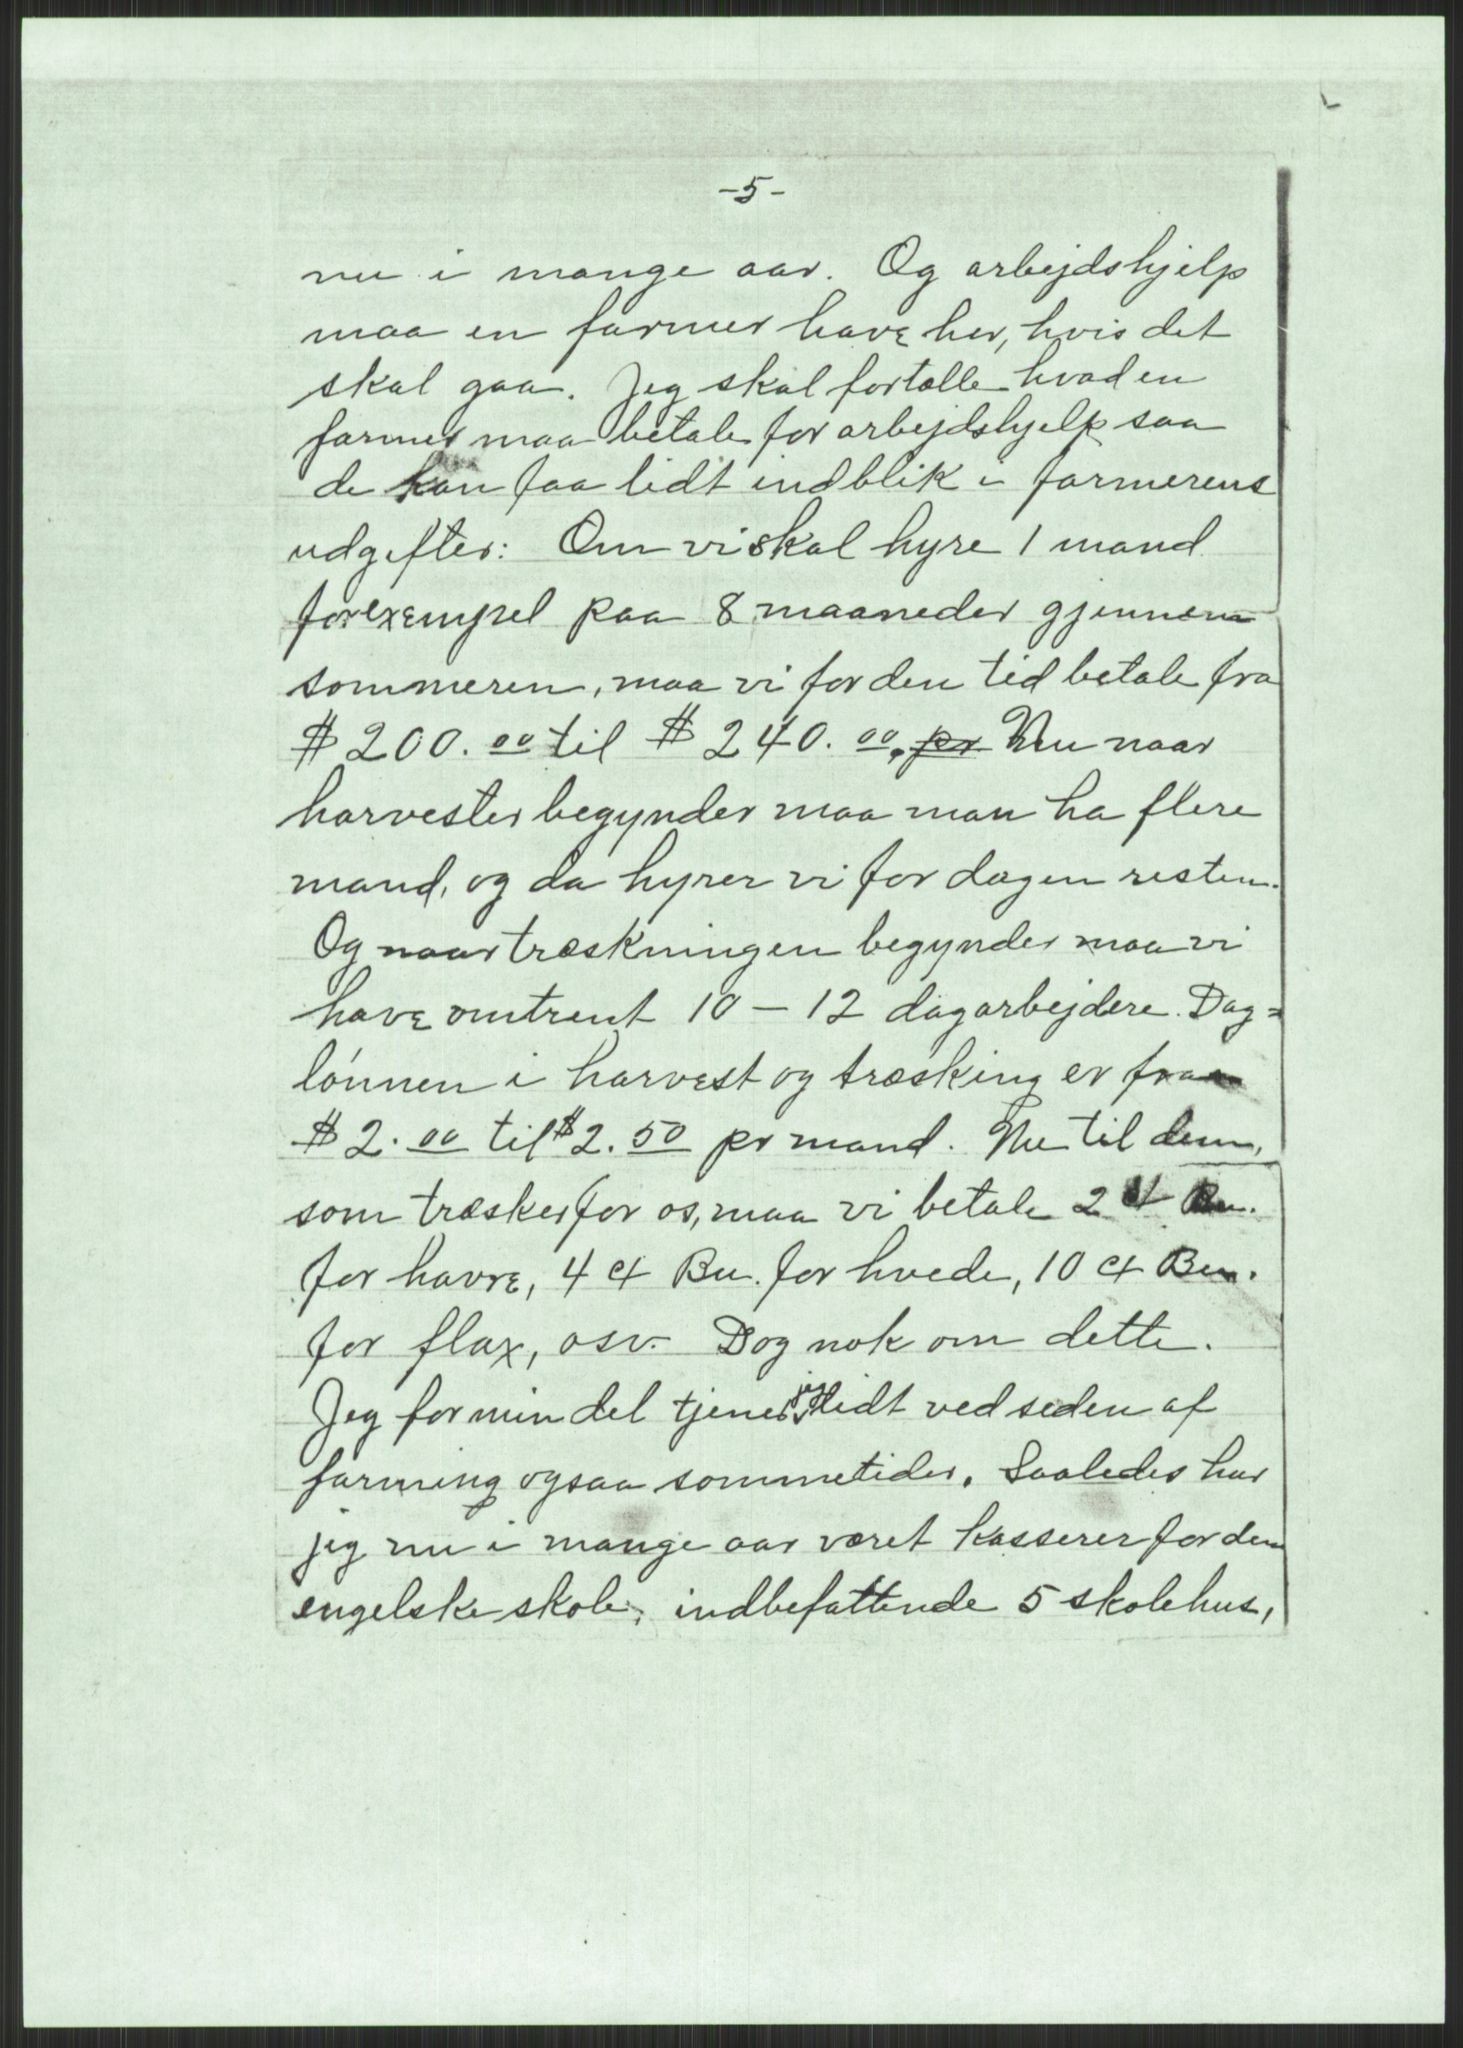 -5-
nu i mange aar. Og arbejdshjelp
maa en farmer have her, hvis det
skal gaa. Jeg skal fortælle hvad en
farmer maa betale for arbejdshjelp saa
de kan faa lidt indblik i farmerens
udgifter: Om vi skal hyre 1 mand
forexempel paa 8 maaneder gjennem
sommeren, maa vi for den tid betale fra
$200.00 til $240.00. pr Nu naar
harvester begynder maa man ha flere
mand, og da hyrer vi for dagen resten.
Og naar træskningen begynder maa vi
have omtrent 10 - 12 dagarbejdere. Dag=
lönnen i harvest og træsking er fra
$2.00 til $2.50 pr mand. Nu til dem,
som træsker for os, maa vi betale 2 ct Bu.
for havre, 4 ct Bu. for hvede, 10 ct Bu.
for flax, osv. Dog nok om dette.
Jeg for min del tjener jeg lidt ved seden af
farming ogsaa sommetider. Saaledes har
jeg nu i mange aar været kasserer for den
engelske skole, indbefattende 5 skolehus,